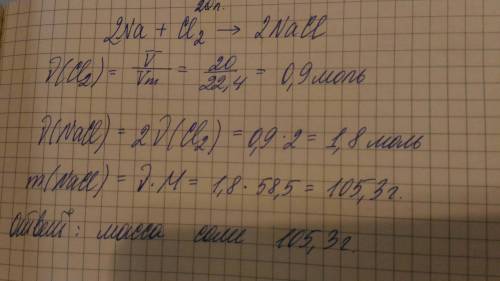 20л.
2Na + Cl₂ → 2NaCl
ν(Cl₂) = V/Vm = 20/22,4 = 0,9 моль
ν(NaCl) = 2ν(Cl₂) = 0,9·2 = 1,8 моль
m(NaCl) = ν·M = 1,8·58,5 = 105,3г.
Ответ: масса соли 105,3г.